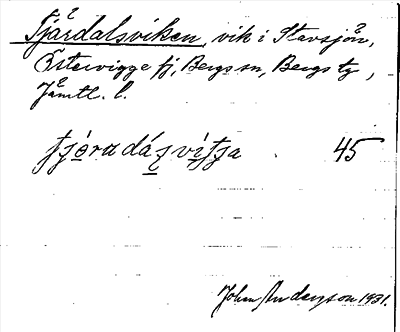 Tjärdalsviken, vik i Stavsjön,
Östervigge fj, Bergs sn, Bergs tg,
Jämtl. l.
tjäradálsvítja 45
John Anderson 1931.